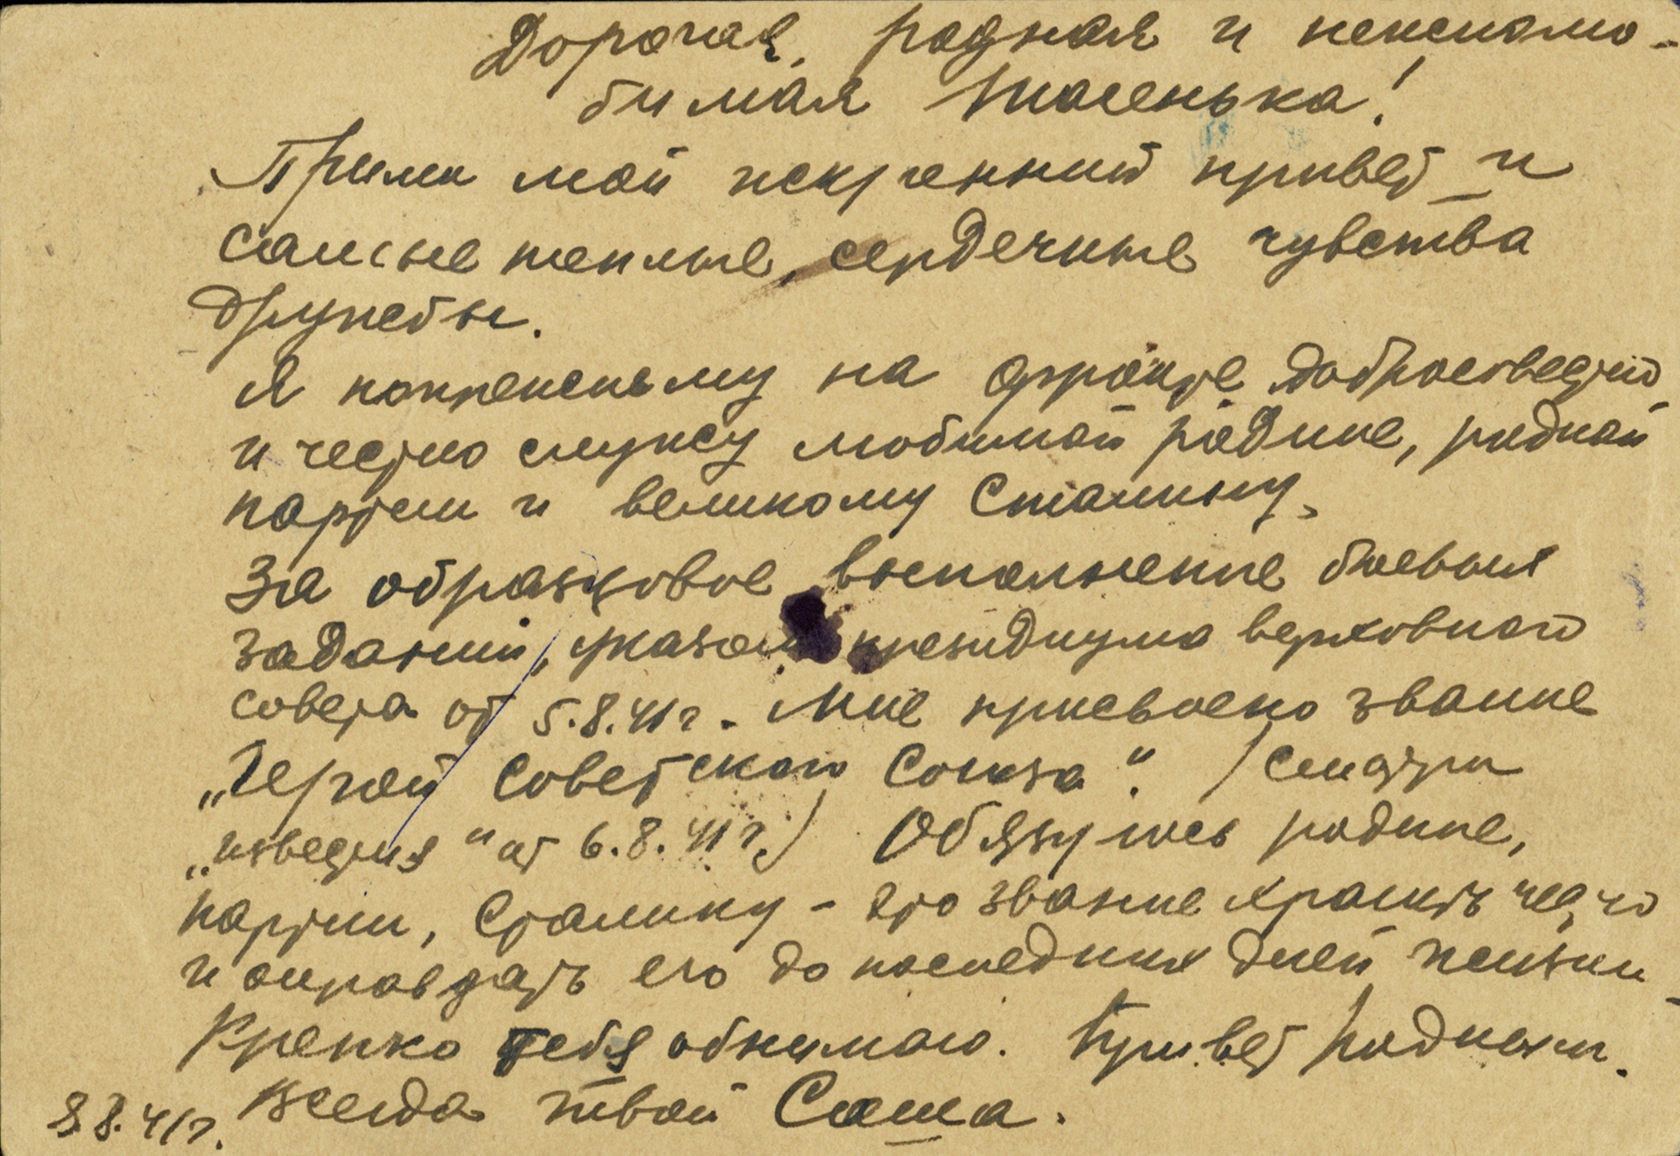 Дорогая, родная и неизмо-
бимая Тасенька!
Прими мой искренний привет и
самые теплые, сердечные чувства
дружбы.
Я попрежнему на фронте добросовестно
и честно служу любимой родине, родной
партии и великому Сталину.
За образцовое выполнение боевых
заданий, указом президиума верховного
совета от 5.8.41 г. Мне присвоено звание
„Герой Советского Союза". /смотри
„известия" от 6.8.41 г./ Обязуюсь родине,
партии, Сталину – это звание хранить честно
и оправдать его до последних дней жизни
Крепко тебя обнимаю. Привет родным.
Всегда твой Саша.
8.8.41 г.